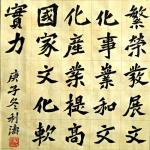 繁榮發展文
化事業和文
化産業提高
國家文化軟
實力
庚子冬利濤